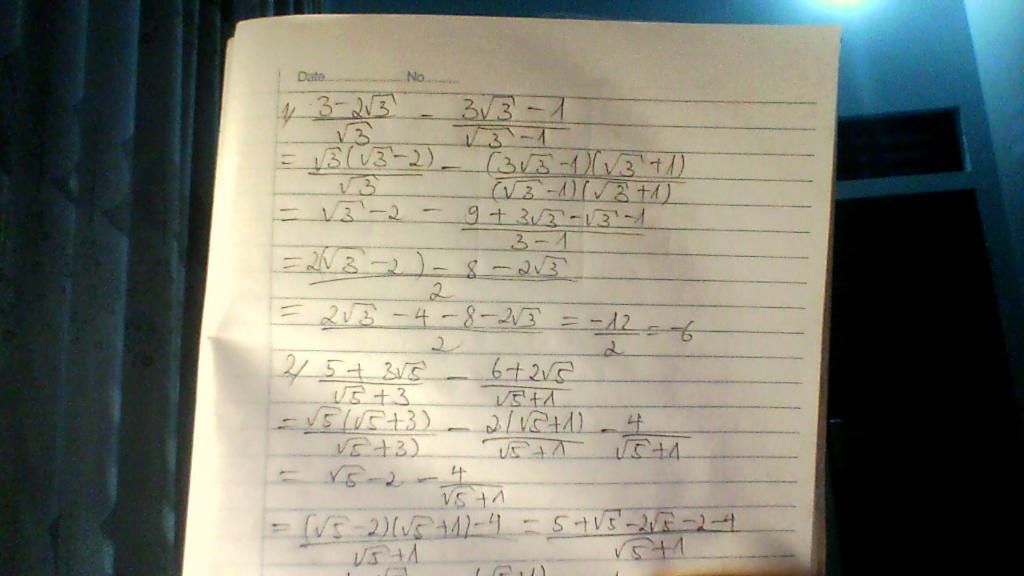 Date No
1/ (3-2√3)/√3 - (3√3-1)/(√3-1)
= √3(√3-2)/√3 - (3√3-1)(√3+1)/(√3-1)(√3+1)
= √3-2 - (9+3√3-√3-1)/(3-1)
= (2(√3-2)-8-2√3)/2
= (2√3-4-8-2√3)/2 = -12/2 = -6
2/ (5+3√5)/(√5+3) - (6+2√5)/(√5+1)
= √5(√5+3)/(√5+3) - 2(√5+1)/(√5+1) - 4/(√5+1)
= √5-2 - 4/(√5+1)
= ((√5-2)(√5+1)-4)/(√5+1) = (5+√5-2√5-2-4)/(√5+1)